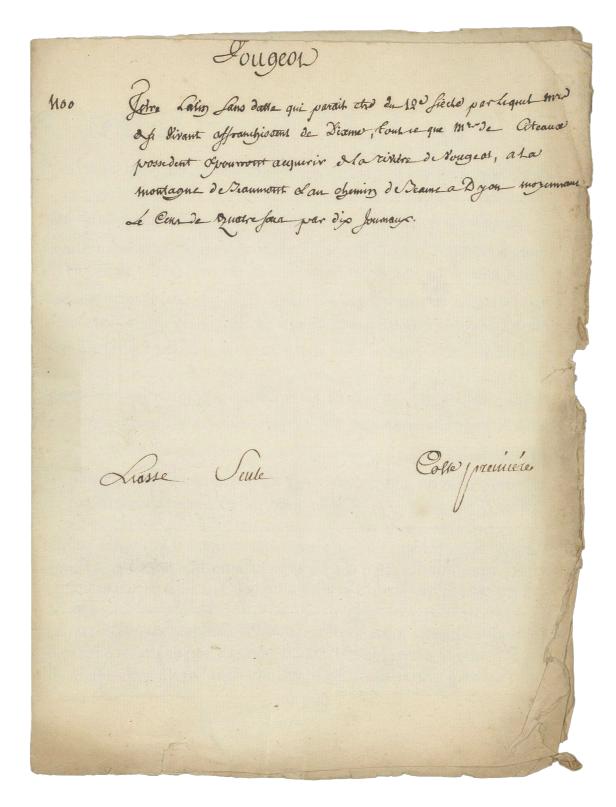 Vougeot
1100
Titre Latin sans datte qui parait etre du 12e siècle par lequel mrs
de St Vivant affranchissent de Dixme, tout ce que Mrs de Citeaux
possedent & pourront acquerir de la riviere de Vougeot, a la
montagne de Beaumont & au chemin de Beaune a Dijon moyennant
Le Cens de quatre sous par dix Journaux.
Liasse Seule Cotte premiére